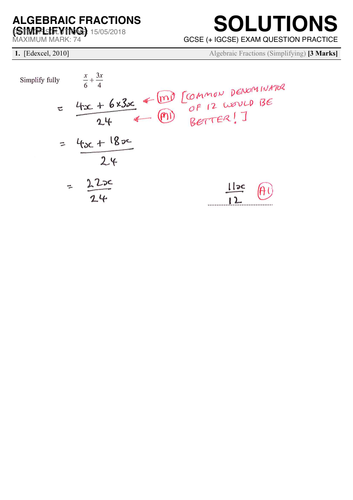 ALGEBRAIC FRACTIONS
(SIMPLIFYING) 15/05/2018
MAXIMUM MARK: 74
SOLUTIONS
GCSE (+ IGCSE) EXAM QUESTION PRACTICE
1. [Edexcel, 2010] Algebraic Fractions (Simplifying) [3 Marks]
Simplify fully x/6 + 3x/4
= 4x + 6×3x ← M1 [COMMON DENOMINATOR
24 ← M1 OF 12 WOULD BE
BETTER!]
= 4x + 18x
24
= 22x
24
11x A1
12